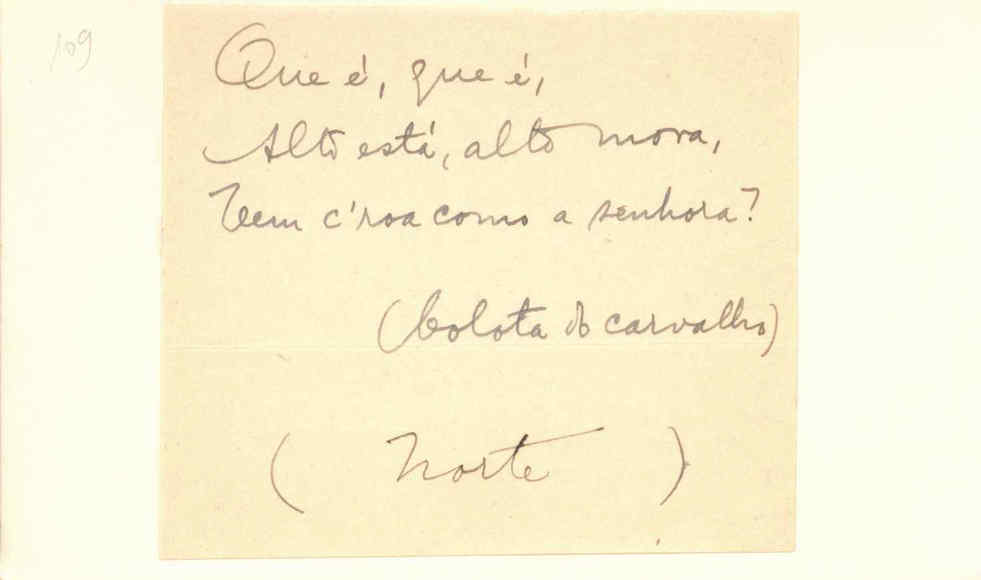 109
Que é, que é,
Alto está, alto mora,
Teem c'roa como a senhora?
(bolota do carvalho)
(Norte)